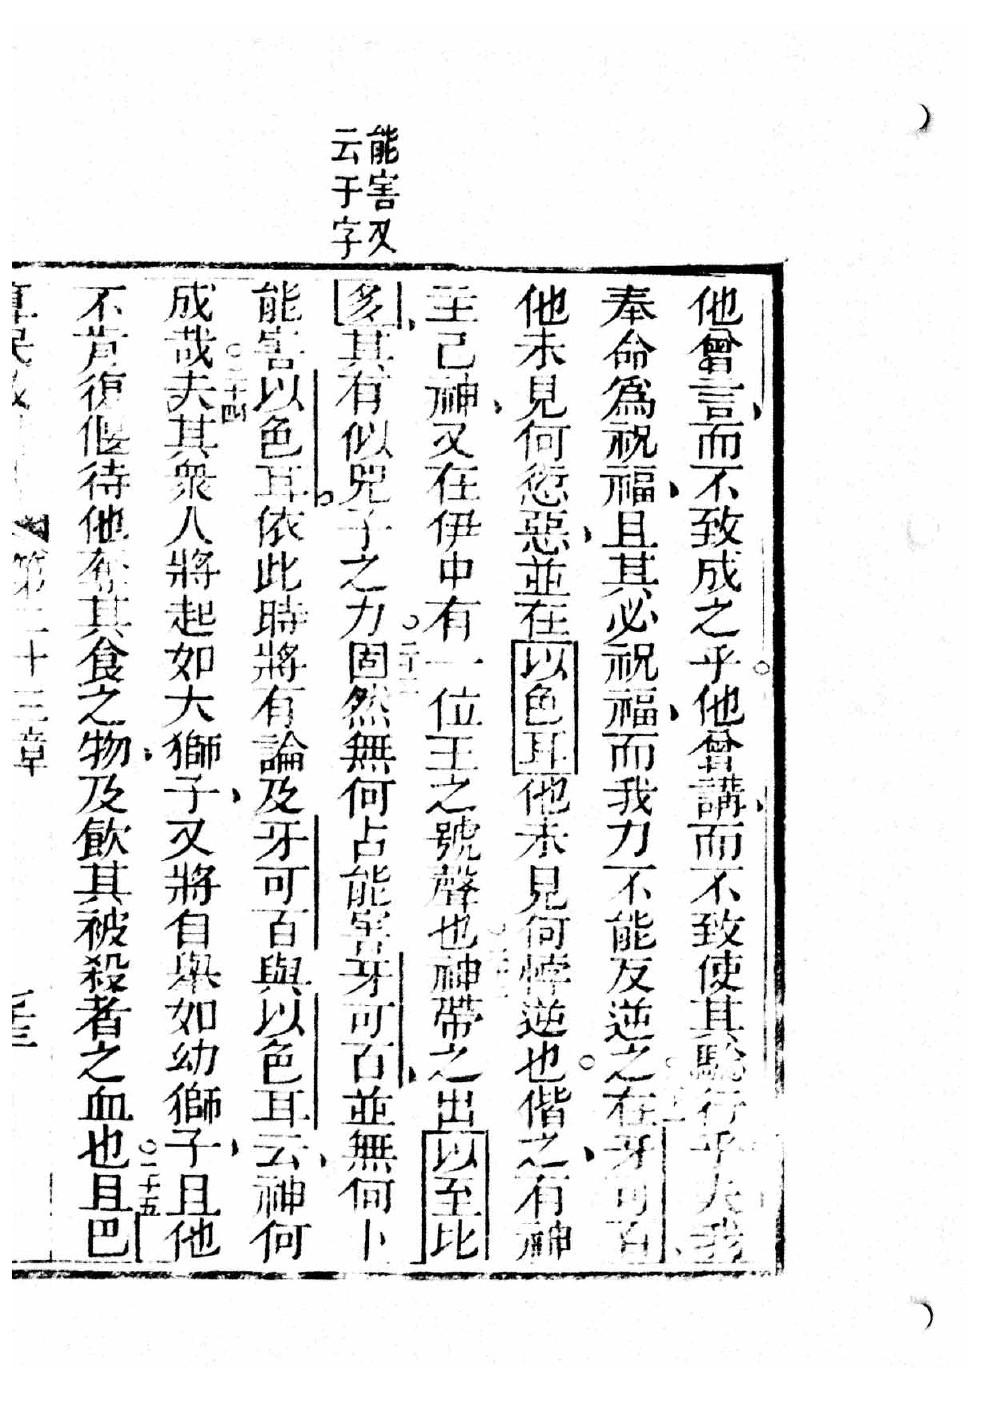 能害又
云于字
他曾言而不致成之乎他曾講而不致使其驗行乎夫我
奉命為祝福且其必祝福而我力不能反逆之在牙可百
他未見何愆惡並在以色耳他未見何悖逆也偕之有神
主己神又在伊中有一位王之號聲也神帶之出以至比
多其有似兕子之力固然無何占能害牙可百並無何卜
能害以色耳依此時將有論及牙可百與以色耳云神何
成哉夫其衆人將起如大獅子又將自舉如幼獅子且他
不肯復偃待他奪其食之物及飲其被殺者之血也且巴
第二十三章